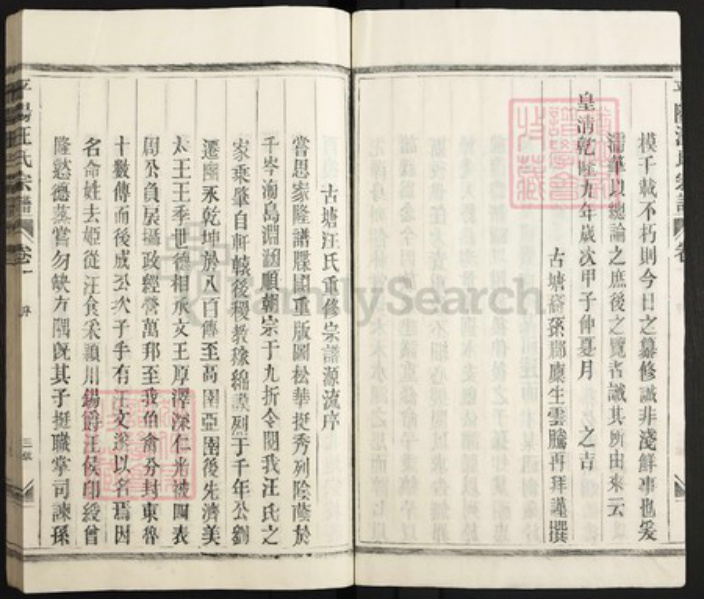 模千載不朽則今日之纂修誠非淺鮮事也爰
濡筆以總論之庶後之覽者識其所由來云
皇清乾隆九年歲次甲子仲夏月 之吉
古塘裔孫郡廩生雲騰再拜謹撰
古塘汪氏重修宗譜源流序
嘗思家隆譜牒國重版圖松華挺秀列陰蔭於
千岑海島淵涵順朝宗于九折令閱我汪氏之
家乘肇自軒轅後稷教稼綿瓞列于千年公劉
遷豳永乾坤於八百傳至高圉亞圉後先濟美
太王王季世德相承文王厚澤深仁光被四表
周公負扆攝政經營萬邦至我伯禽分封東魯
十數傳而後成公次子手有汪文遂以名焉因
名命姓去姬從汪食采潁川錫爵汪侯印綬曾
隆懿德蒸嘗勿缺方隅既其子挺職掌司諫孫
平陽汪氏宗譜 卷一 序
FamilySearch